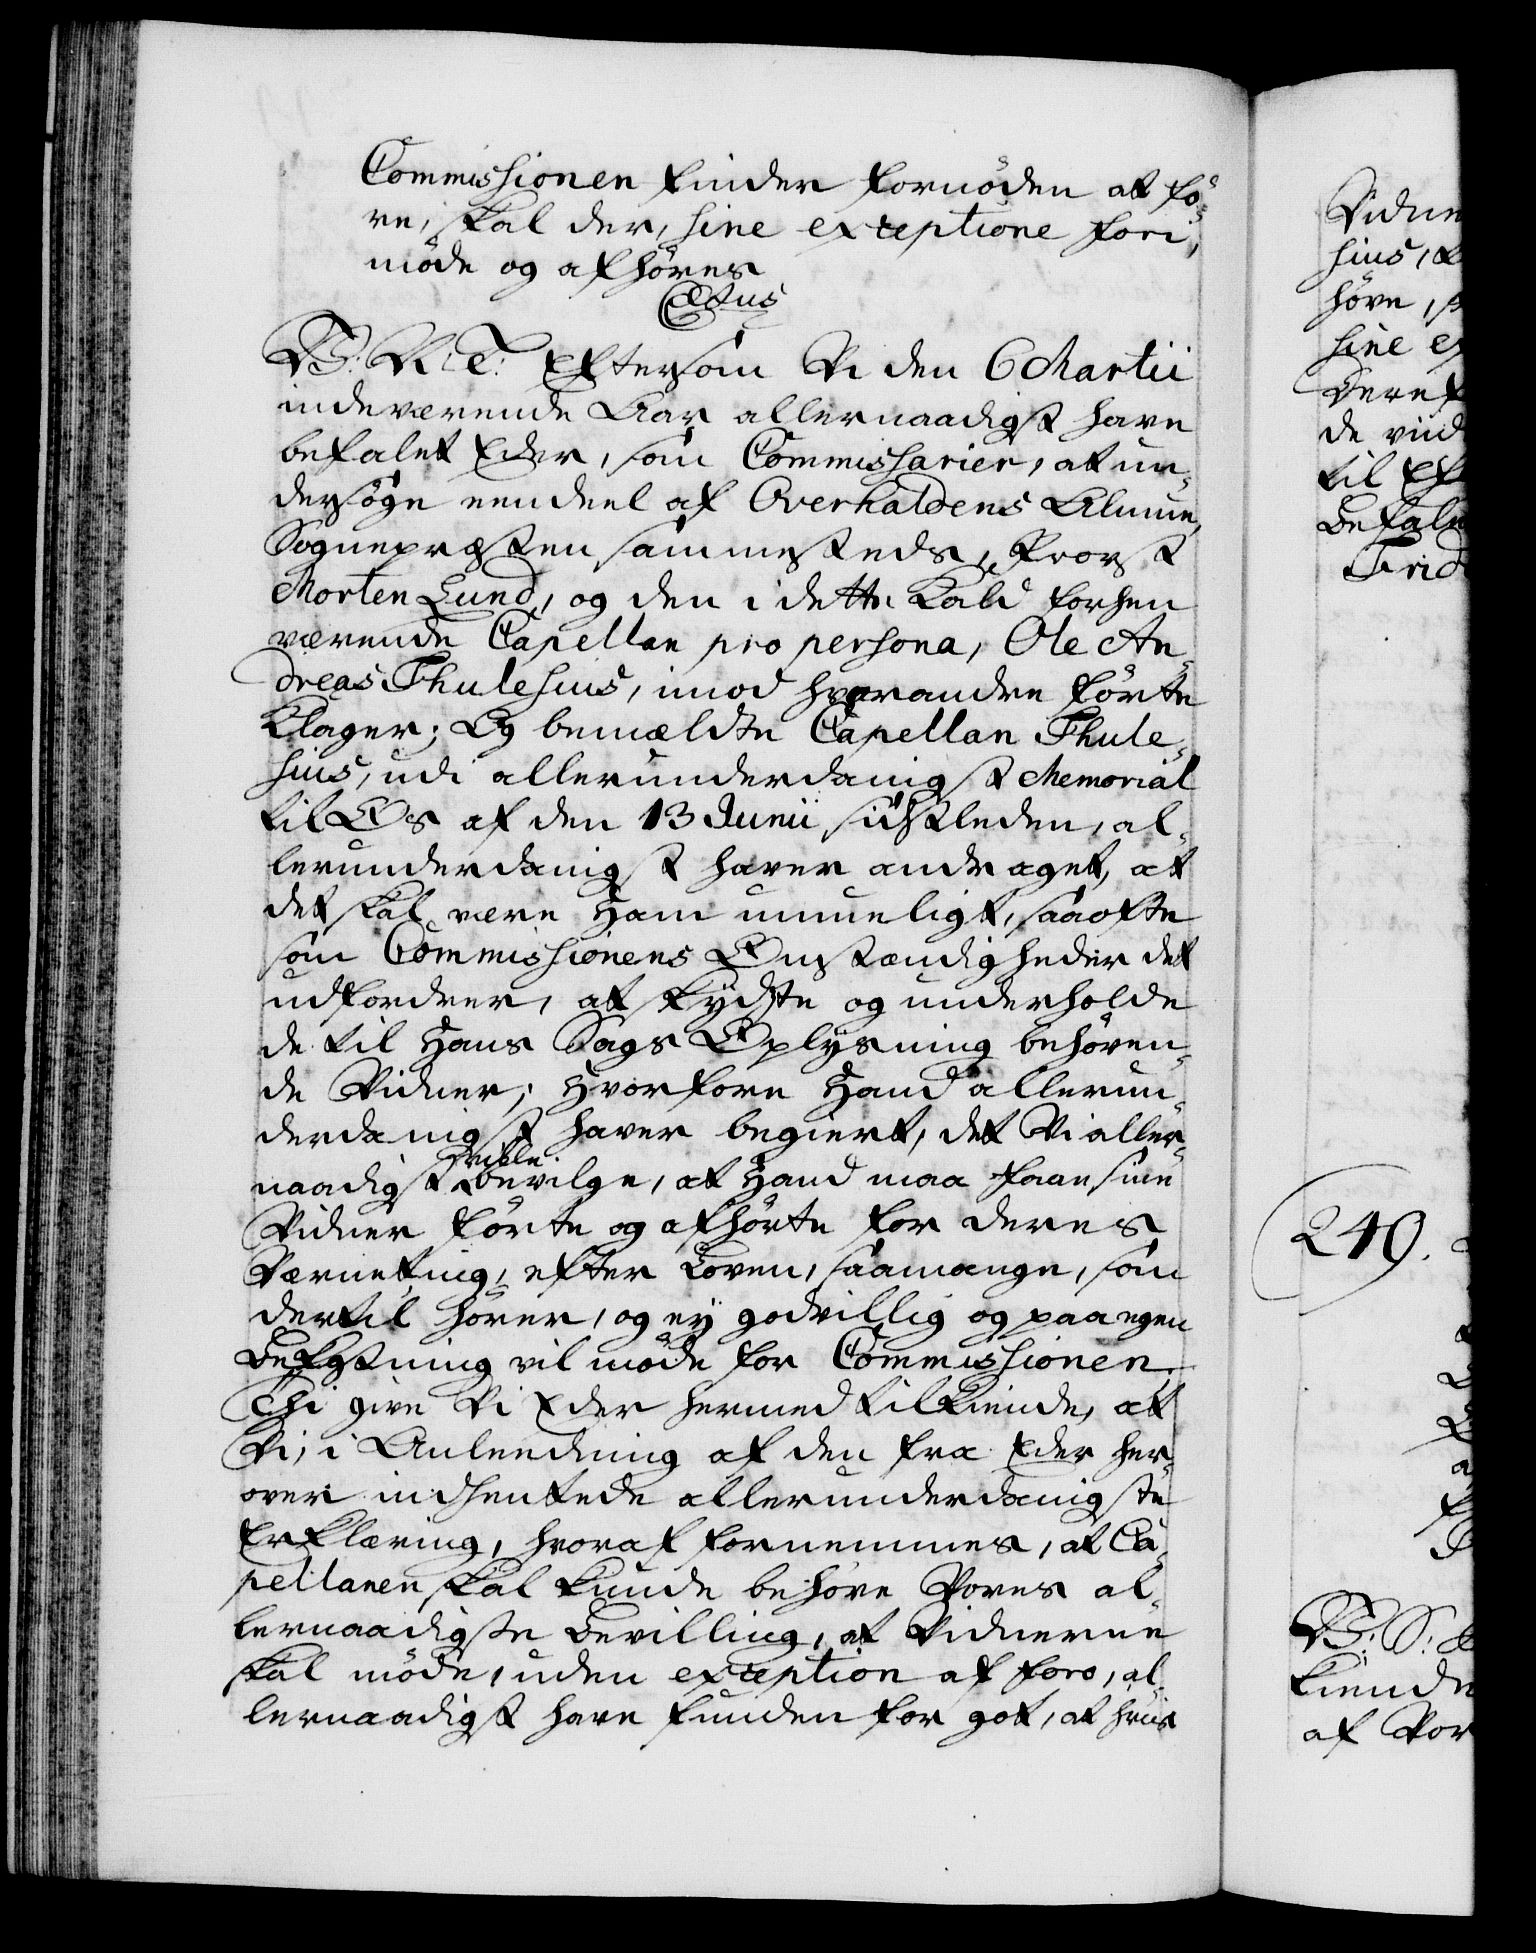 Commissionen finder fornöden at fö-
re, skal der, sine exceptione fori,
möde og afhöres
V: V: T: Eftersom Vi den 6 Martii
indeværende Aar allernaadigst have
befalet Eder, som Commissarier, at un-
dersöge eendeel af Overhaldens Almue,
Sognepræsten sammesteds, Provst
Morten Lund, og den i dette Kald forhen
værende Capellan pro persona, Ole An-
dreas Thulesius, imod hverandre förte
Klager; Og bemældte Capellan Thule-
sius, udi allerunderdanigst Memorial
til Os af den 13 Junii sidstleden, al-
lerunderdanigst haver andraget, at
det skal være Ham umueligt, saaofte
som Commissionens Omstændigheder det
udfordrer, at skydste og underholde
de til Hans Sags Oplysning behöven-
de Vidner; Hvorfore Hand allerun-
derdanigst haver begiert, det Vi aller-
naadigst ville bevilge, at Hand maa faae sine
Vidner förte og afhörte for deres
Værneting, efter Loven, saamange, som
dertil hörer, og ey godvillig og paa egen
Bekostning vil möde for Commissionen.
Thi give Vi Eder hermed tilkiende, at
Vi, i Anleedning af den fra Eder her-
over indhentede allerunderdanigste
Erklæring, hvoraf fornemmes, at Ca-
pellanen skal kunde behöve Vores al-
lernaadigste Bevilling, at Vidnerne
skal möde, uden exception af foro, al-
lernaadigst have funden for got, at hvis
Vidne
sius, 
höre, 
sine ex
Deref
de vid
til Ef
Befale
Frid
249.
V: S: 
kiende
af Vor